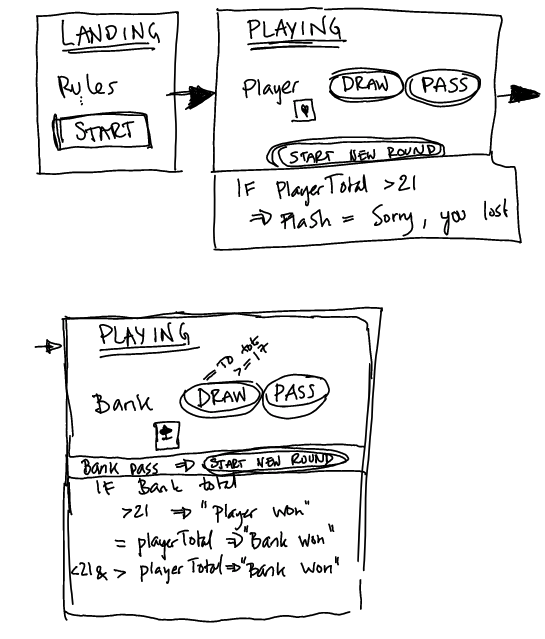 LANDING
Rules
START
PLAYING
Player DRAW PASS
START NEW ROUND
IF PlayerTotal >21
⇒ Flash = Sorry, you lost
PLAYING
= TO tot
>= 17
Bank DRAW PASS
Bank pass ⇒ START NEW ROUND
IF Bank total
>21 ⇒ "Player won"
= playerTotal ⇒ "Bank won"
<21 & > playerTotal ⇒ "Bank won"